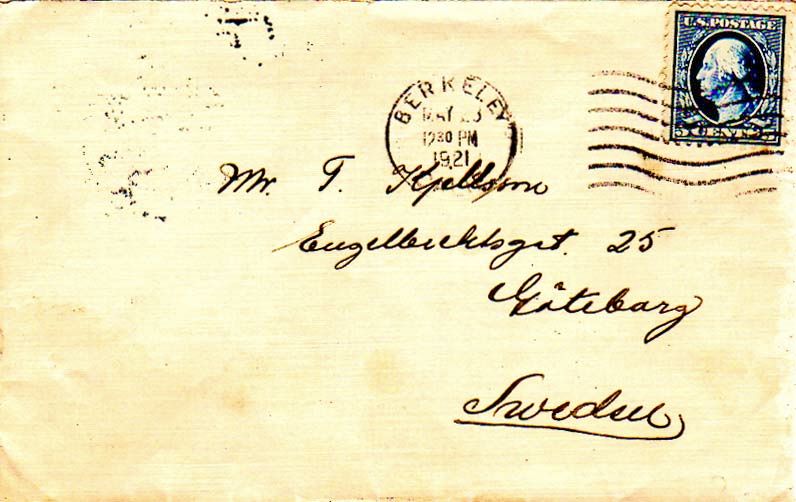 U.S. POSTAGE
5 CENTS 5
BERKELEY
MAY 23
12 30 PM
1921
Mr. T. Kjellsson
Engelbrektsgat. 25
Göteborg
Sweden